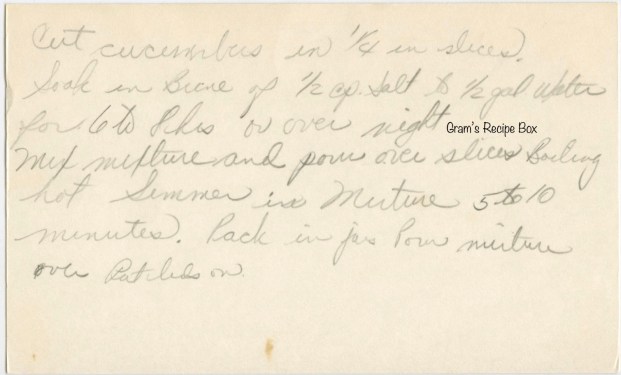 Cut cucumbers in 1/4 in slices.
Soak in Brine of 1/2 cp. Salt to 1/2 gal Water
for 6 to 8 hrs or over night
Gram's Recipe Box
Mix mixture and pour over slices Boiling
hot Simmer in Mixture 5 to 10
minutes. Pack in jars Pour mixture
over Put lids on.